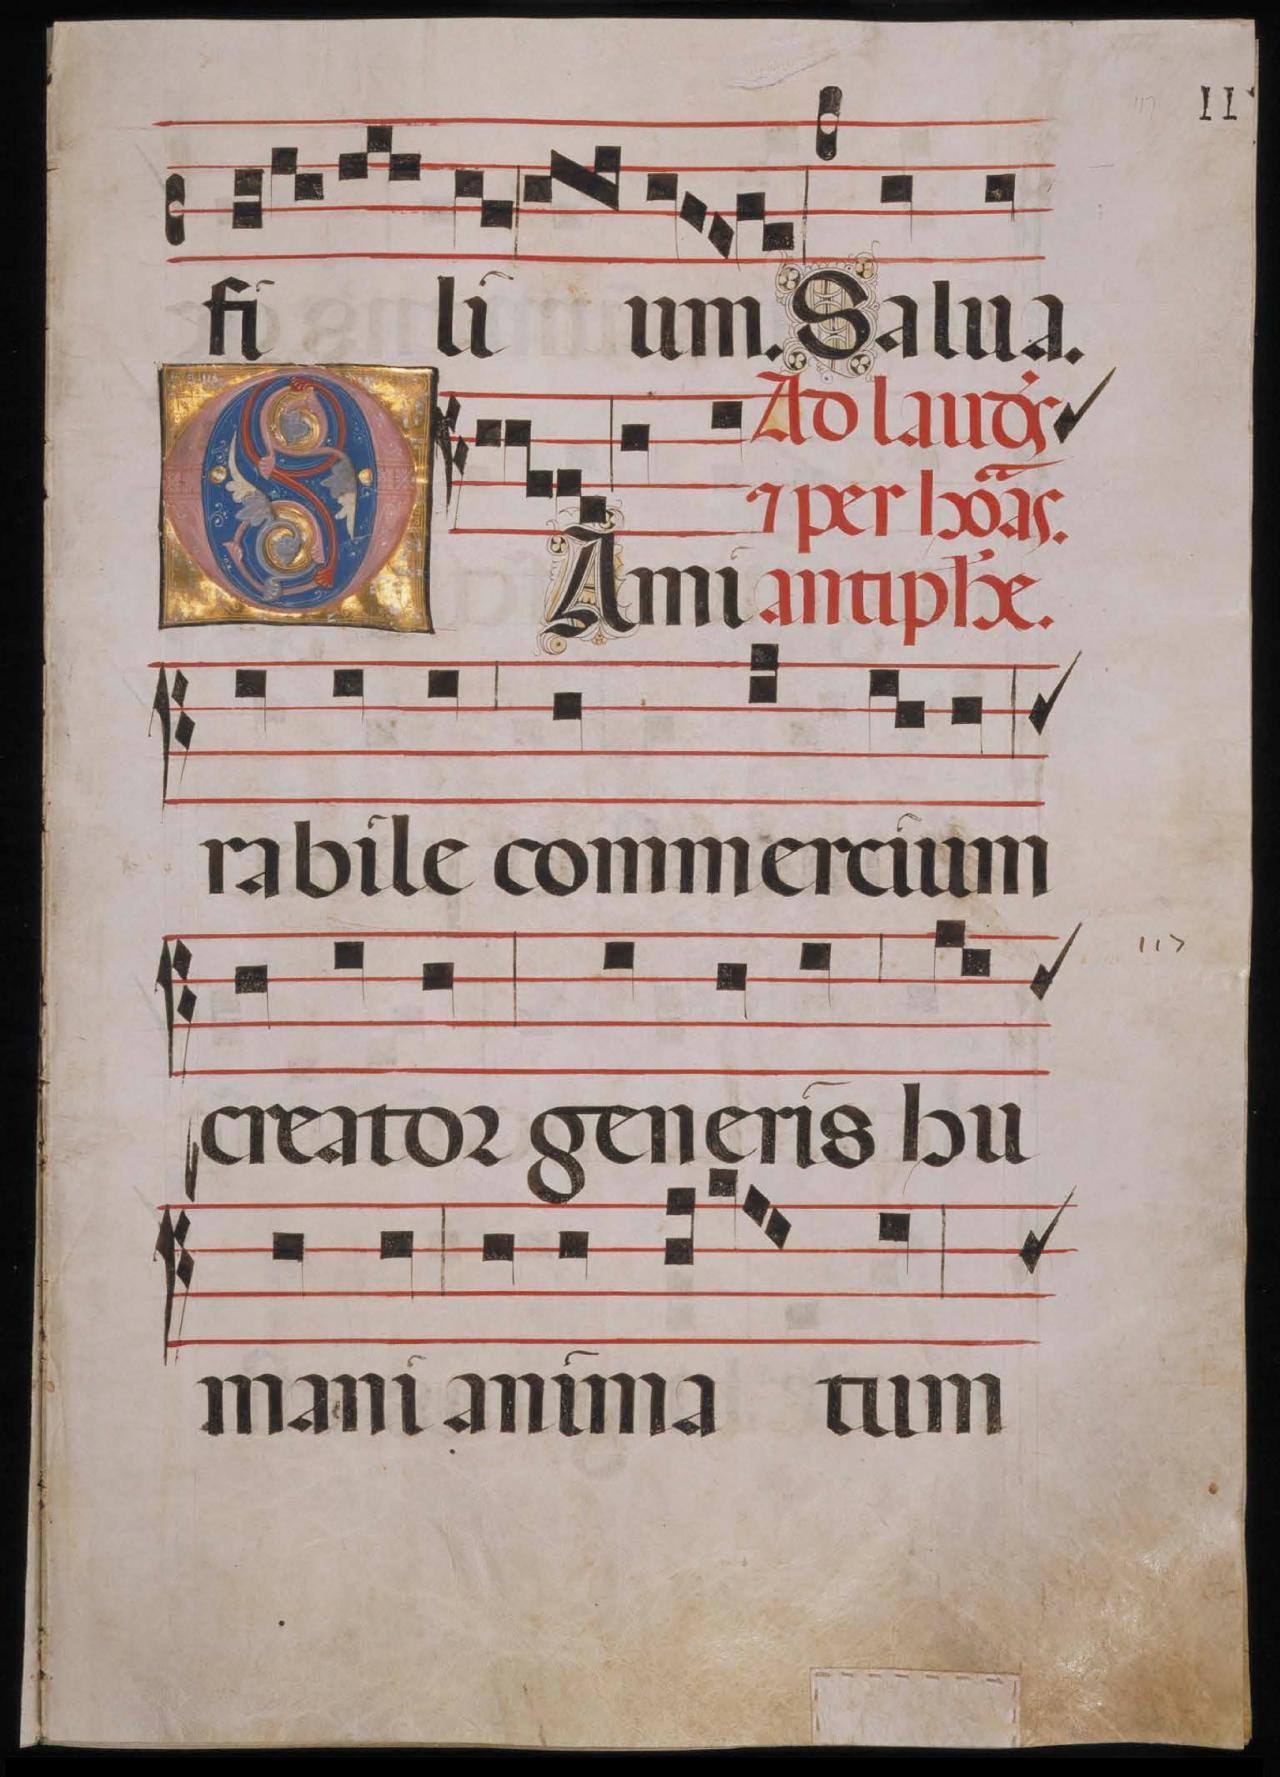 II
fi li um. Salua.
O
Ad laud's
⁊ per hōas.
Ami antiphe.
rabile commercium
117
creator generis hu
mani anima tum